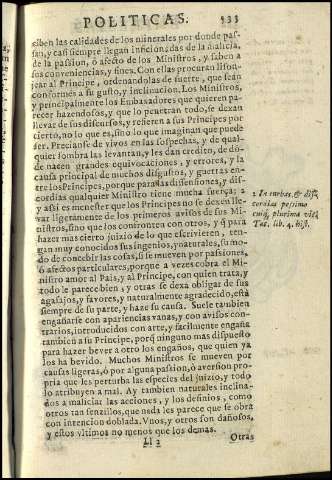 POLITICAS. 533
ciben las calidades de los minerales por donde pas-
san, y casi siempre llegan inficionadas de la malicia,
de la passion, ò afecto de los Ministros, y saben a
sus conveniencias, y fines. Con ellas procuran lison-
jear al Principe, ordenandolas de suerte, que sean
conformes a su gusto, y inclinacion. Los Ministros,
y principalmente los Embaxadores que quieren pa-
recer hazendosos, y que lo penetran todo, se dexan
llevar de sus discursos, y refieren a sus Principes por
cierto, no lo que es, sino lo que imaginan que puede
ser. Precianse de vivos en las sospechas, y de qual-
quier sombra las levantan, y les dan credito, de dõ-
de nacen grandes equivocaciones, y errores, y la
causa principal de muchos disgustos, y guerras en-
tre los Principes, porque para las dissensiones, y dis-
cordias qualquier Ministro tiene mucha fuerça; 2
y assi es menester que los Principes no se dexen lle-
var ligeramente de los primeros avisos de sus Mi-
nistros, sino que los confronten con otros, y q̃ para
hazer mas cierto juizio de lo que escrivieren, ten-
gan muy conocidos sus ingenios, y naturales, su mo-
do de concebir las cosas, si se mueven por passiones,
ò afectos particulares, porque a vezes cobra el Mi-
nistro amor al Pais, y al Principe, con quien trata, y
todo le parece bien, y otras se dexa obligar de sus
agasajos, y favores, y naturalmente agradecido, està
siempre de su parte, y haze su causa. Suele tambien
engañarse con apariencias vanas, y con avisos con-
trarios, introducidos con arte, y facilmente engaña
tambien a su Principe, porq̃ ninguno mas dispuesto
para hazer bever a otro los engaños, que quien ya
los ha bevido. Muchos Ministros se mueven por
causas ligeras, ò por alguna passion, ò aversion pro-
pria que les perturba las especies del juizio, y todo
lo atribuyen a mal. Ay tambien naturales inclina-
dos a maliciar las acciones, y los desinios, como
otros tan senzillos, que nada les parece que se obra
con intencion doblada. Vnos, y otros son dañosos,
y estos vltimos no menos que los demas.
Ll 2 Otras
2 In turbas & dis-
cordias pessimo
cuiq; plurima vis.
Tac. lib. 4. hist.